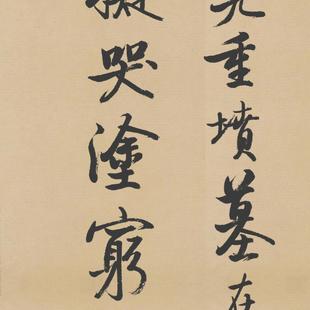 重墳墓在
擬哭塗窮